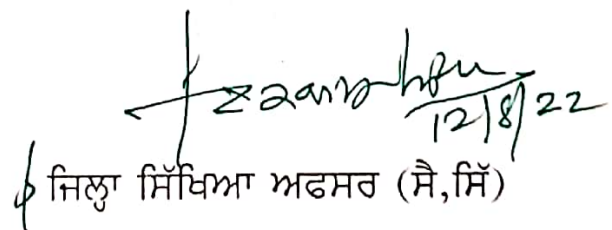 12/8/22
ਜਿਲ੍ਹਾ ਸਿੱਖਿਆ ਅਫਸਰ (ਸੈ,ਸਿੱ)